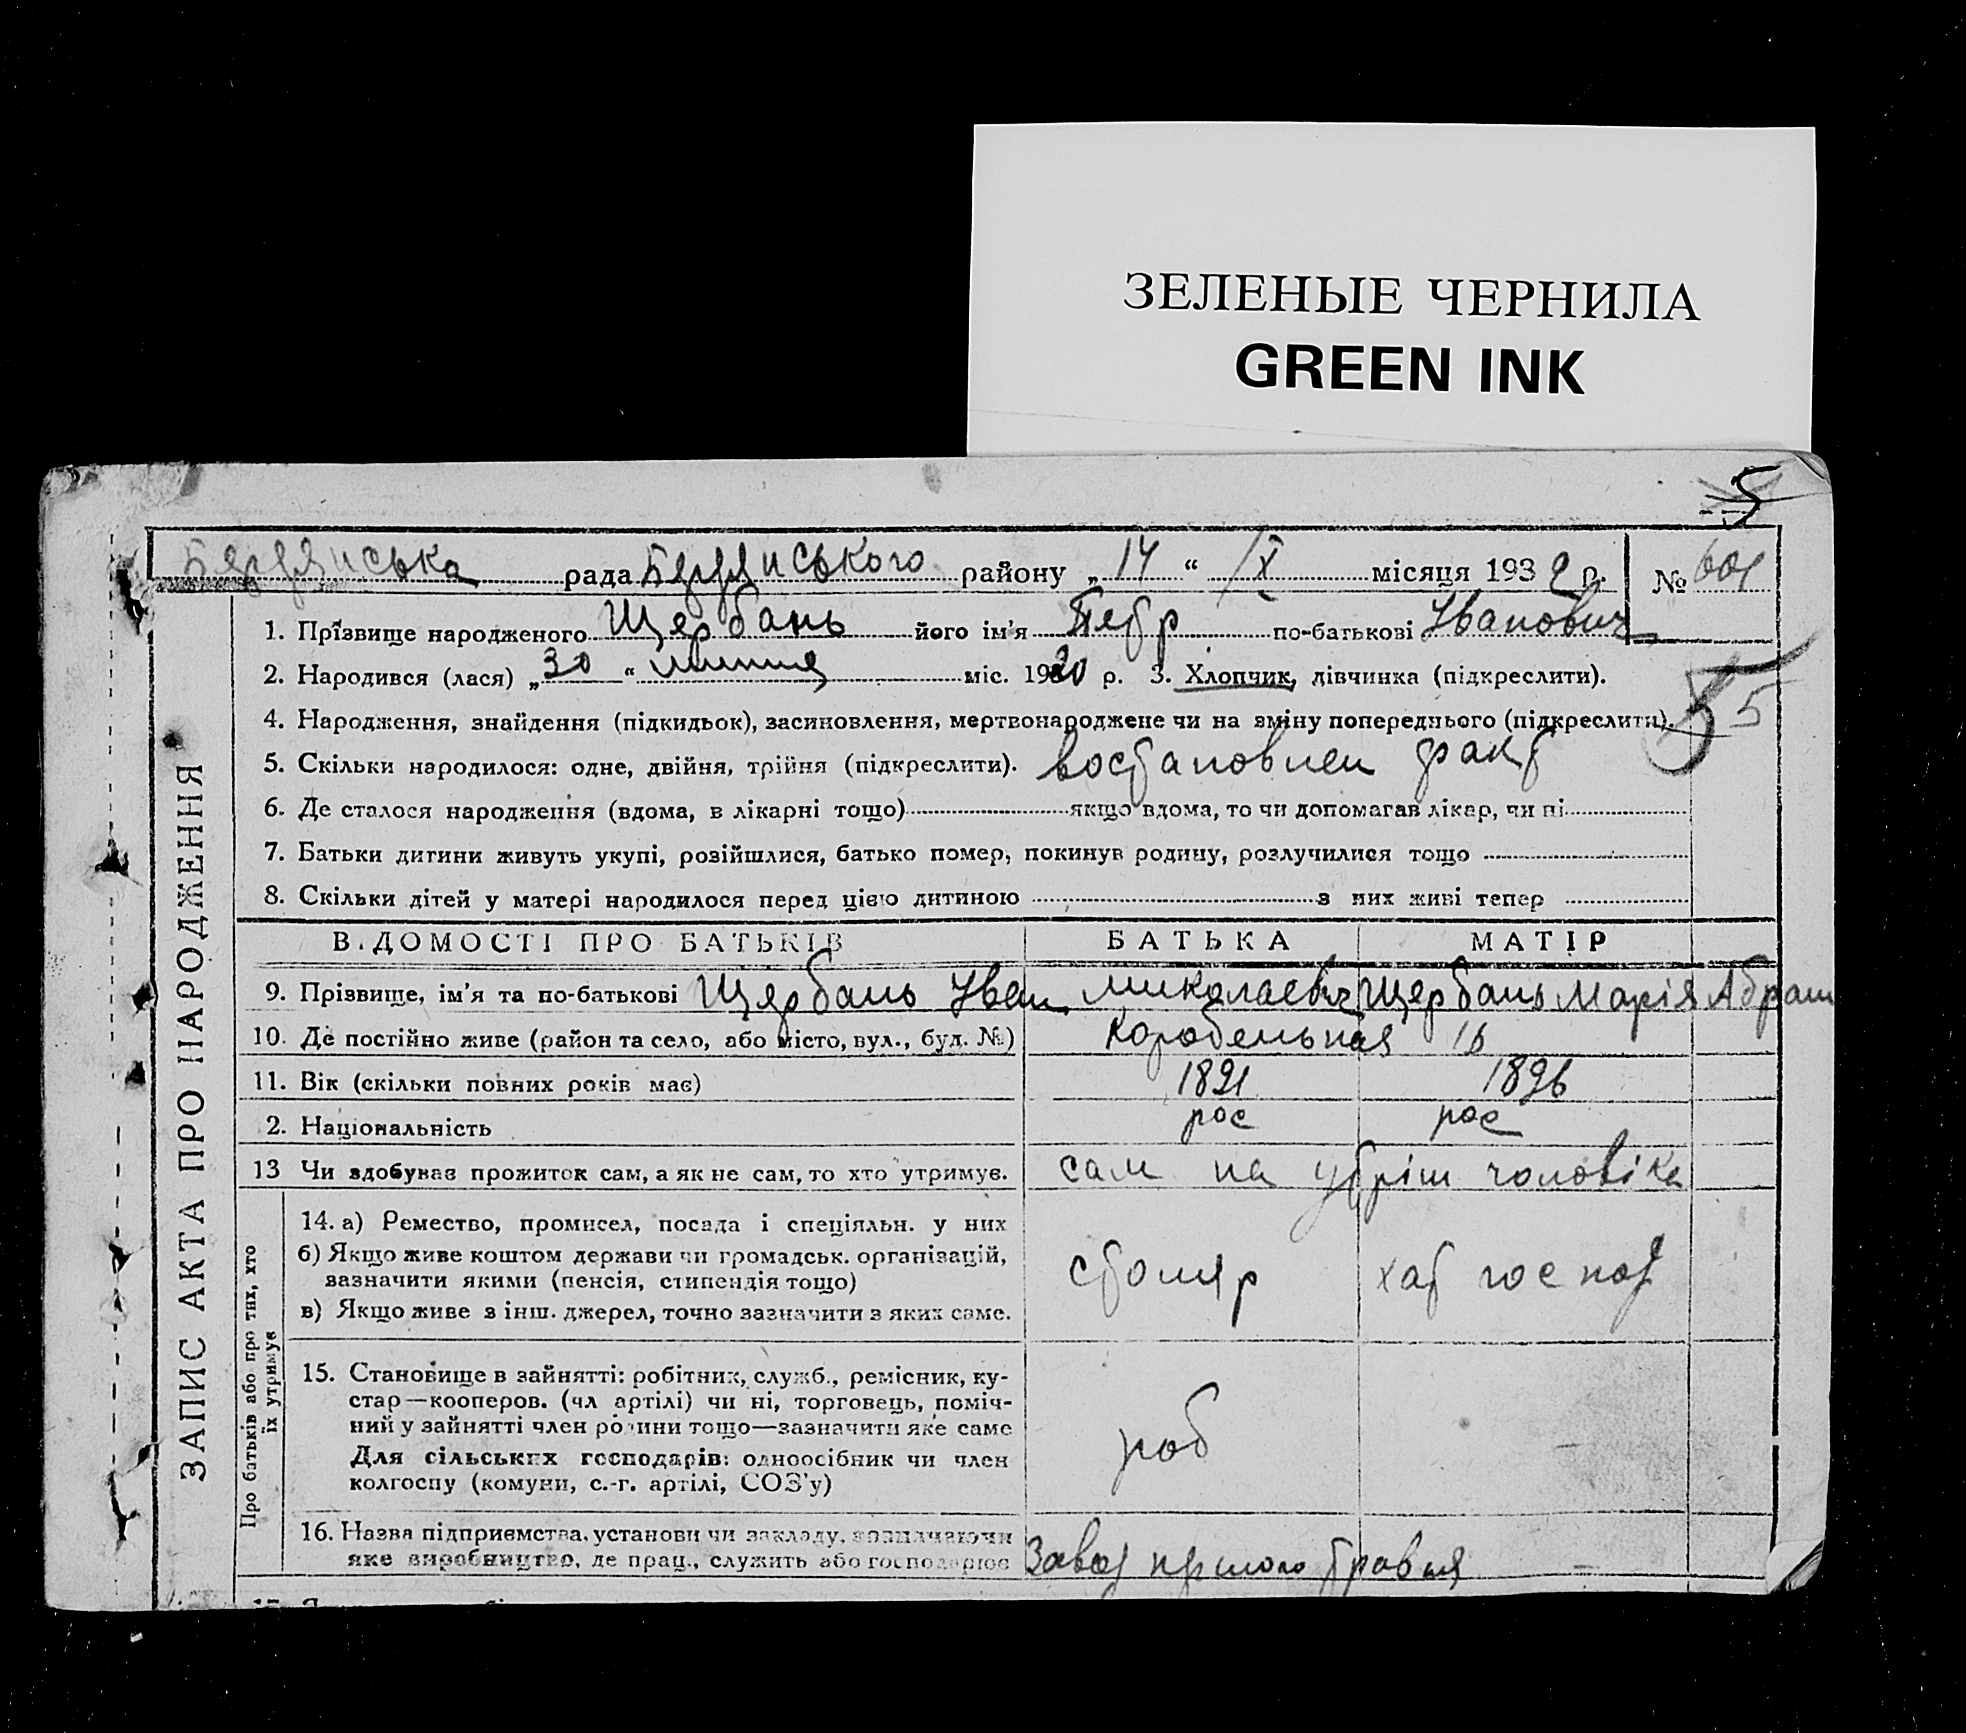 ЗЕЛЕНЫЕ ЧЕРНИЛА
GREEN INK
5
Бердянська рада Бердянського району „ 14 “ IX місяця 1932 р. № 601
1. Прізвище народженого Щербань його ім’я Петр по-батькові Іванович
2. Народився (лася) „ 30 “ липня міс. 1920 р. 3. Хлопчик, дівчинка (підкреслити).
4. Народження, знайдення (підкидьок), засиновлення, мертвонароджене чи на зміну попереднього (підкреслити).
55
5. Скільки народилося: одне, двійня, трійня (підкреслити). востановлен факт
6. Де сталося народження (вдома, в лікарні тощо) якщо вдома, то чи допомагав лікар, чи ні
7. Батьки дитини живуть укупі, розійшлися, батько помер, покинув родину, розлучилися тощо
8. Скільки дітей у матері народилося перед цією дитиною з них живі тепер
ВІДОМОСТІ ПРО БАТЬКІВ БАТЬКА МАТІР
9. Прізвище, ім’я та по-батькові Щербань Іван Миколаевич Щербань Марія Абрам
10. Де постійно живе (район та село, або місто, вул., буд. №) Корабельная 16
11. Вік (скільки повних років має) 1891 1896
2. Національність рос рос
13 Чи здобував прожиток сам, а як не сам, то хто утримує. сам на утрім чоловіка
ЗАПИС АКТА ПРО НАРОДЖЕННЯ
Про батьків або про тих, хто їх утримує
14. а) Ремество, промисел, посада і спеціяльн. у них
б) Якщо живе коштом держави чи громадськ. організацій,
зазначити якими (пенсія, стипендія тощо) столяр хат господ
в) Якщо живе з інш. джерел, точно зазначити з яких саме.
15. Становище в зайнятті: робітник, служб., ремісник, ку-
стар—кооперов. (чл артілі) чи ні, торговець, поміч-
ний у зайнятті член родини тощо—зазначити яке саме
роб
Для сільських господарів: одноосібник чи член
колгоспу (комуни, с.-г. артілі, СОЗ’у)
16. Назва підприємства, установи чи закладу, зазначаючи
яке виробництво, де прац., служить або господарює Завод першого травня